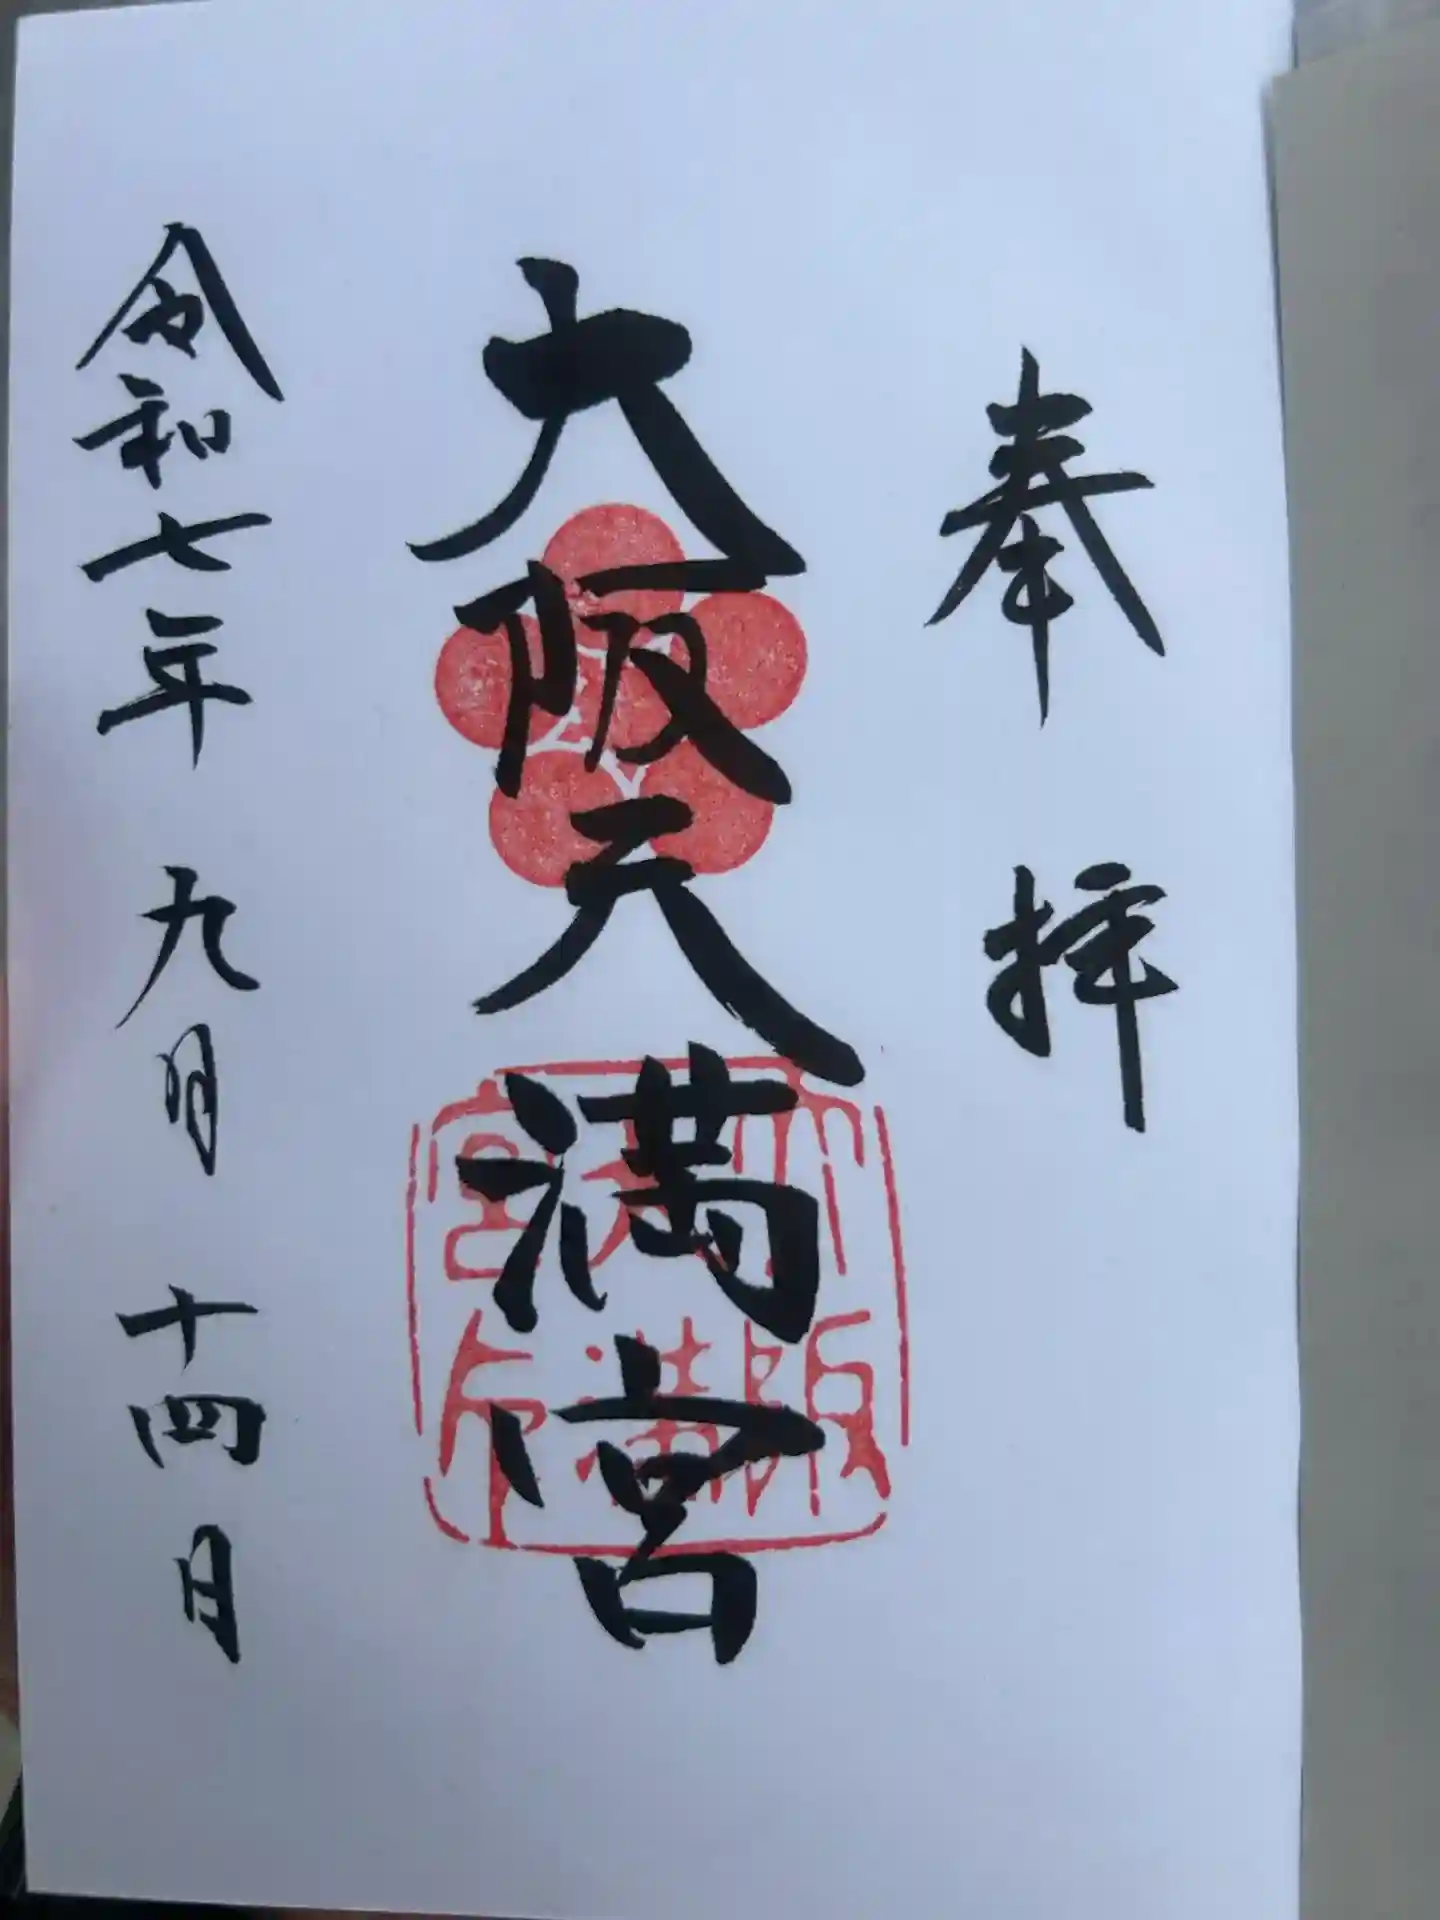 奉拝
大阪天満宮
令和七年九月十四日
大阪
天満
宮印